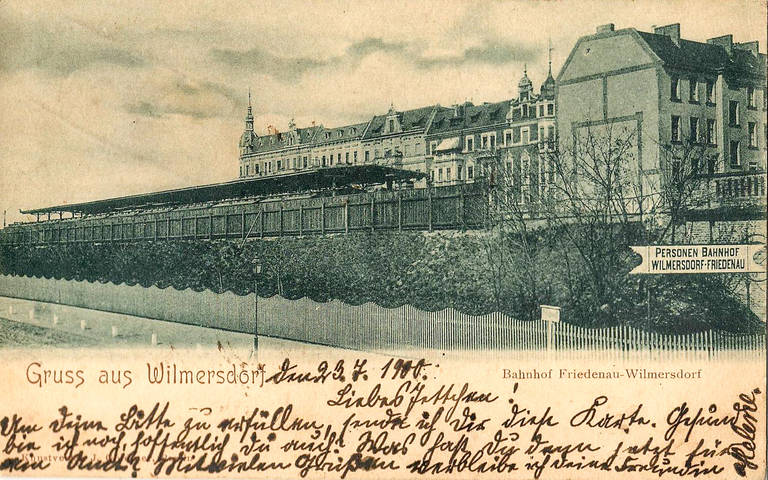 PERSONEN BAHNHOF
WILMERSDORF-FRIEDENAU
Gruss aus Wilmersdorf den 23.7.1900.
Bahnhof Friedenau-Wilmersdorf
Liebes Jettchen!
Um Deine Bitte zu erfüllen, sende ich Dir diese Karte. Gesund
bin ich noch, hoffentlich du auch! Was hast du denn jetzt für
ein Mit vielen Grüßen verbleibe ich deine Freundin
Helene.